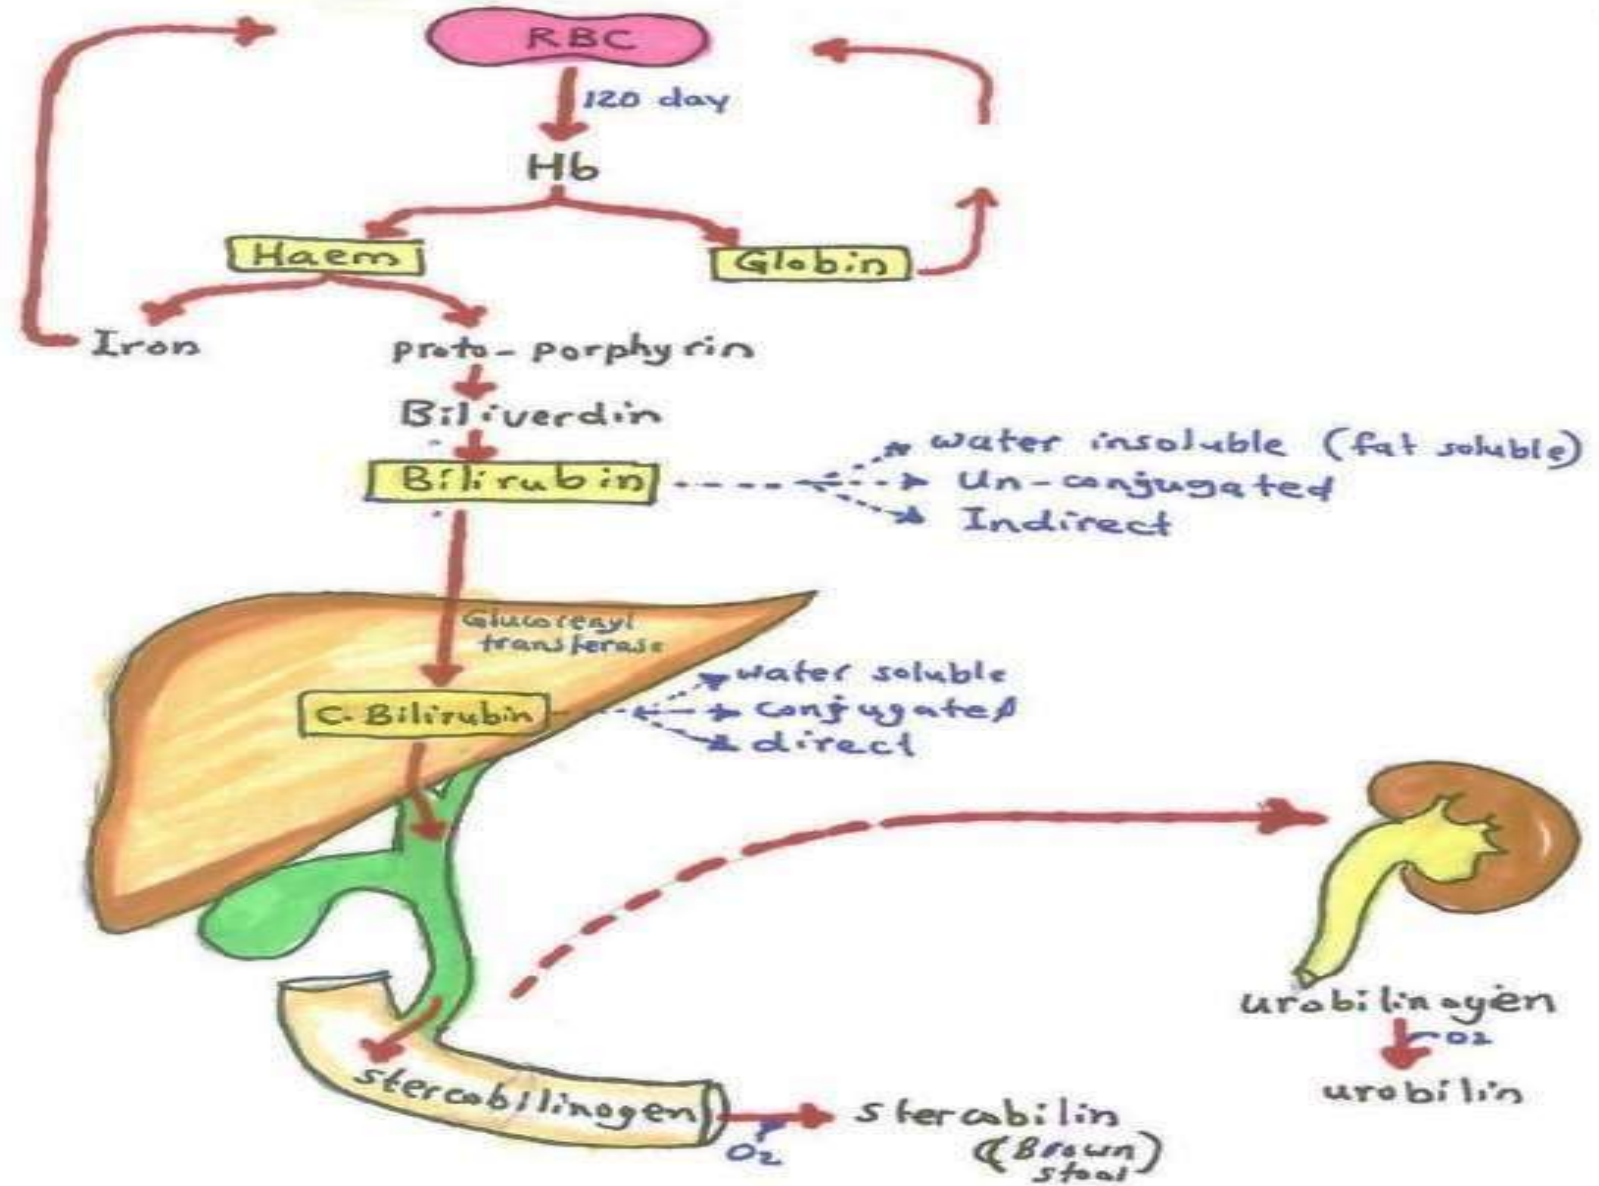 RBC
120 day
Hb
Haem
Globin
Iron
proto-porphyrin
Biliverdin
Bilirubin
water insoluble (fat soluble)
Un-conjugated
Indirect
Glucorenyl
transferase
C. Bilirubin
water soluble
conjugated
direct
urobilinogen
O2
urobilin
stercobilinogen
O2
stercobilin
(Brown)
stool